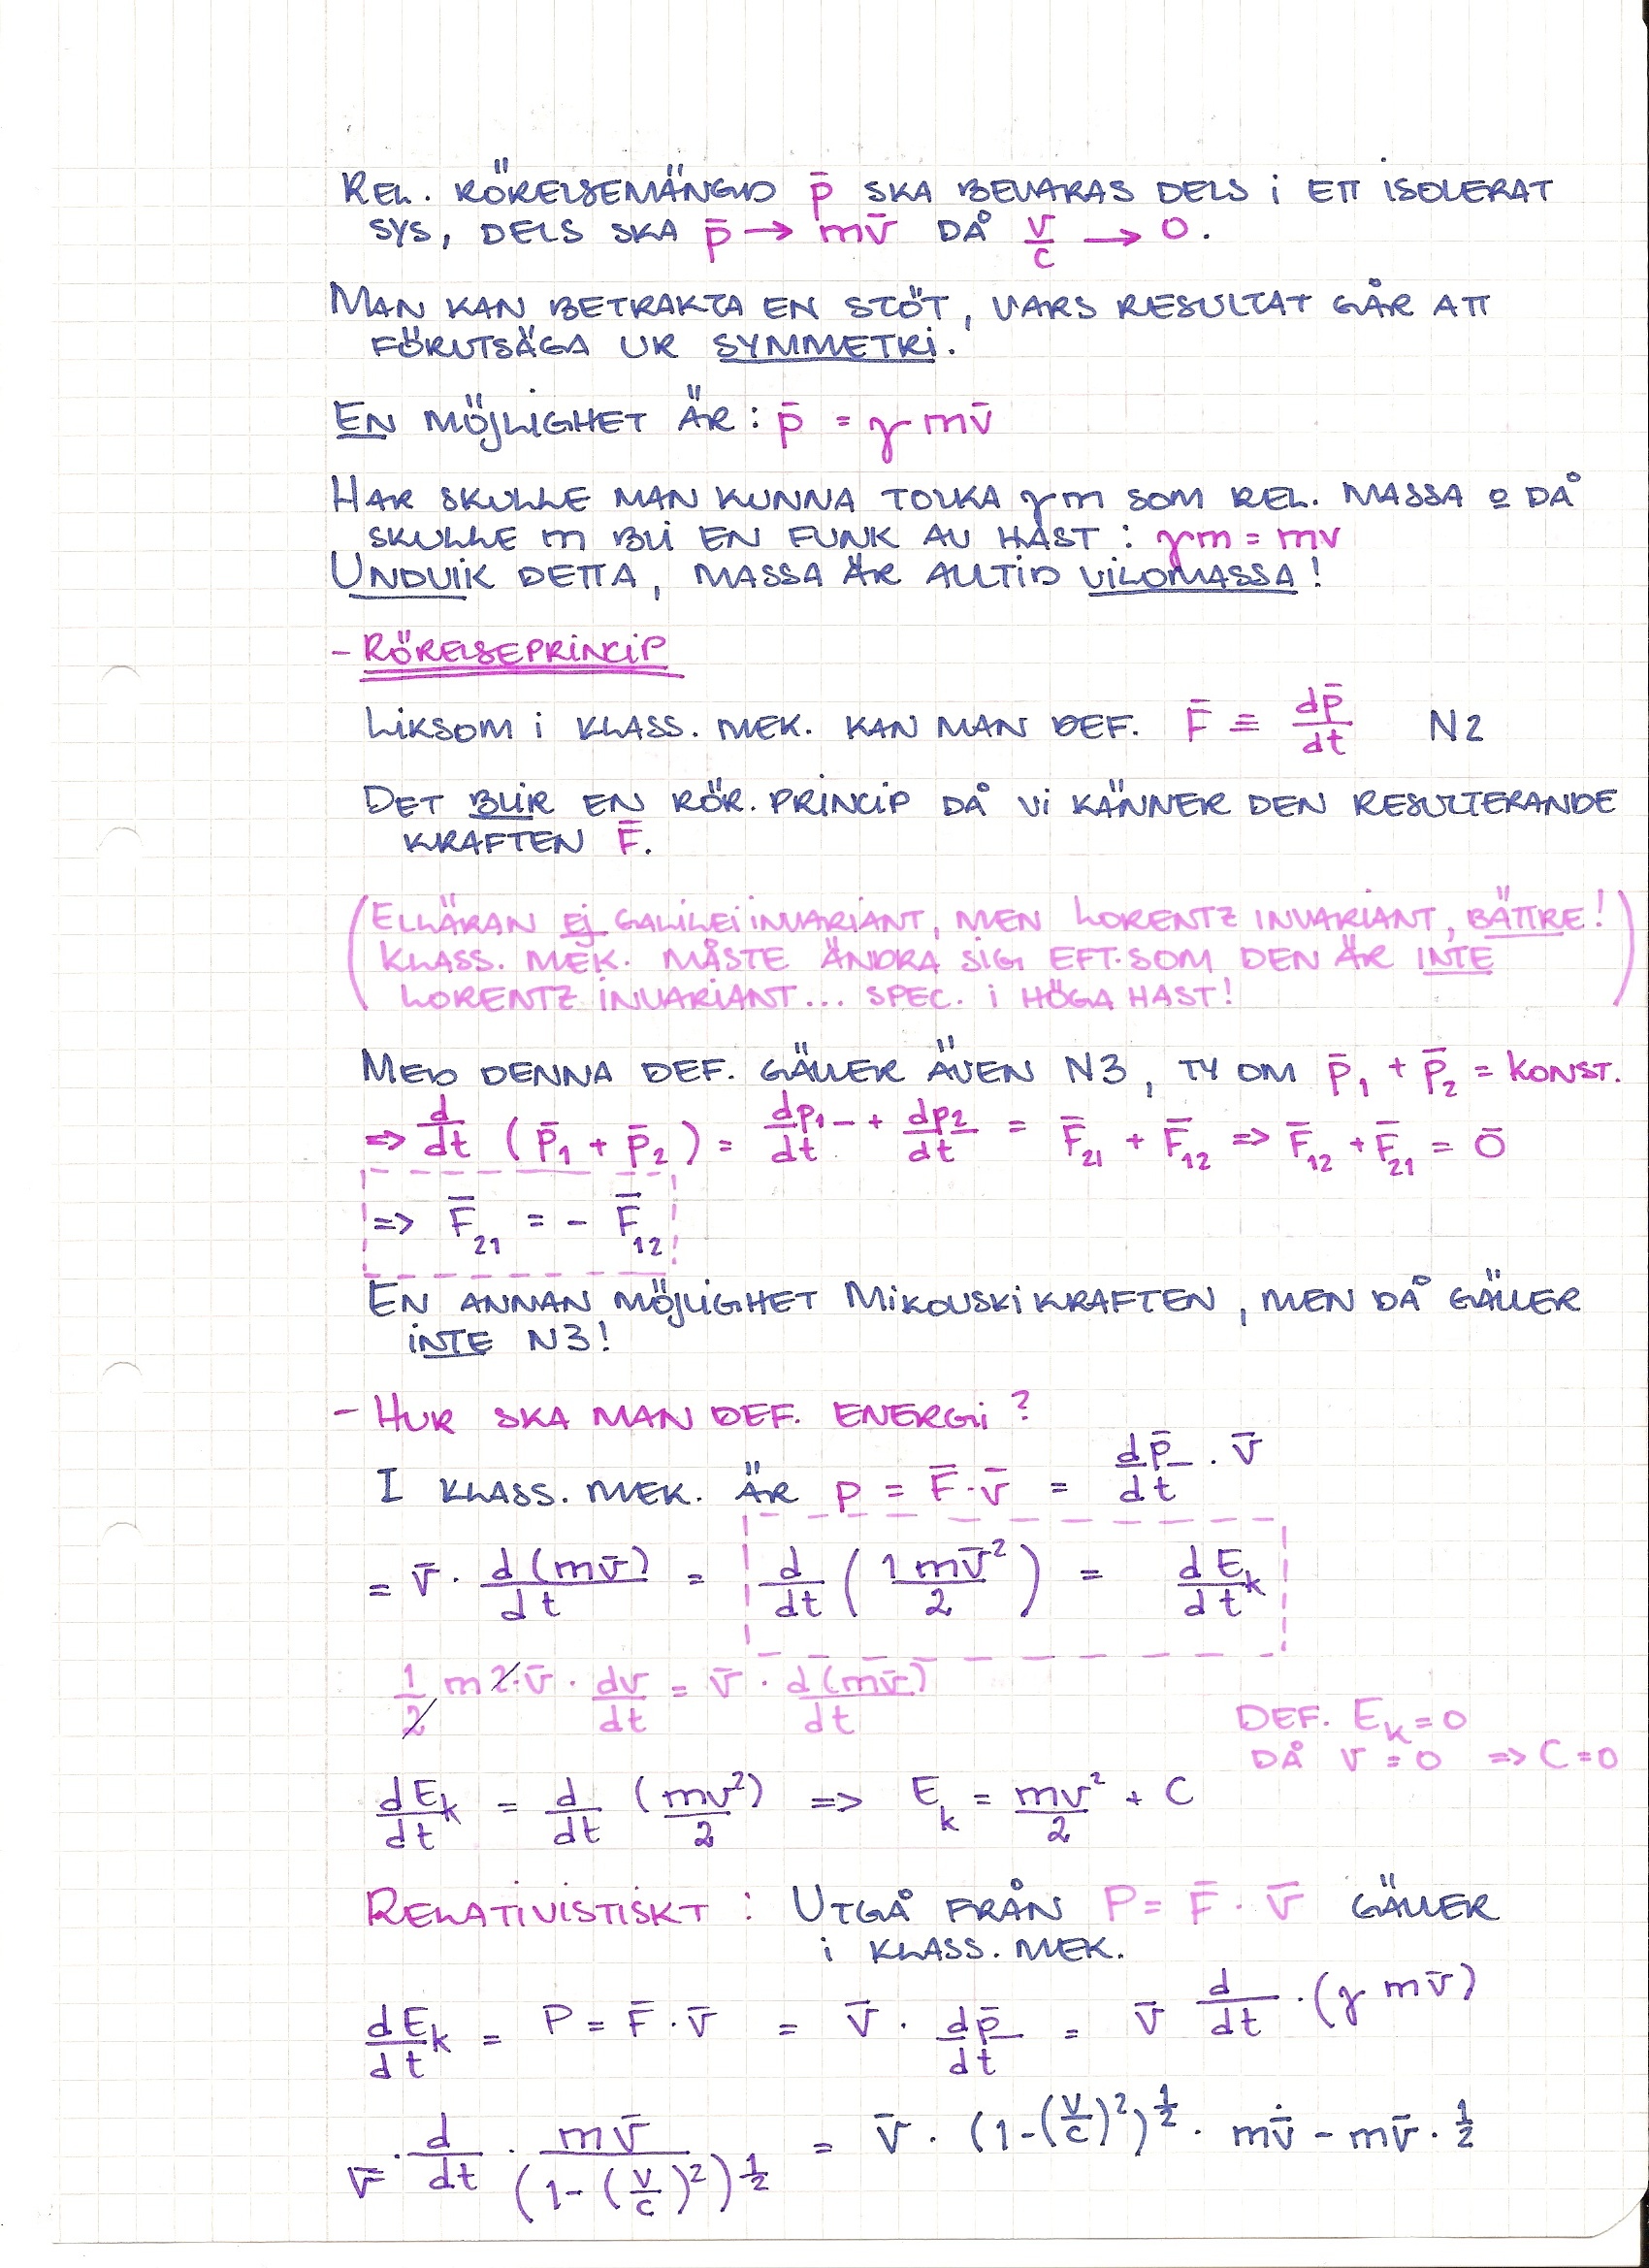 REL. RÖRELSEMÄNGD p̄ SKA BEVARAS DELS i ETT ISOLERAT
SYS, DELS SKA p̄ → mv̄ DÅ v/c → 0.
MAN KAN BETRAKTA EN STÖT, VARS RESULTAT GÅR ATT
FÖRUTSÄGA UR SYMMETRI.
EN MÖJLIGHET ÄR: p̄ = γmv̄
HAR SKULLE MAN KUNNA TOLKA γm SOM REL. MASSA o DÅ
SKULLE m BLI EN FUNK AV HAST: γm = mv
UNDVIK DETTA, MASSA ÄR ALLTID VILOMASSA!
- RÖRELSEPRINCIP
LIKSOM i KLASS. MEK. KAN MAN DEF. F̄ ≡ dp̄/dt N2
DET BLIR EN RÖR. PRINCIP DÅ Vi KÄNNER DEN RESULTERANDE
KRAFTEN F̄.
(ELLÄRAN Ej GALILEiINVARIANT, MEN LORENTZ INVARIANT, BÄTTRE!
KLASS. MEK. MÅSTE ÄNDRA SIG EFT.SOM DEN ÄR INTE
LORENTZ INVARIANT... SPEC. i HÖGA HAST!)
MED DENNA DEF. GÄLLER ÄVEN N3, TY OM p̄₁ + p̄₂ = KONST.
⇒ d/dt (p̄₁ + p̄₂) = dp₁/dt + dp₂/dt = F̄₂₁ + F̄₁₂ ⇒ F̄₁₂ + F̄₂₁ = 0̄
⇒ F̄₂₁ = - F̄₁₂
EN ANNAN MÖJLIGHET MIKOUSKiKRAFTEN, MEN DÅ GÄLLER
INTE N3!
- HUR SKA MAN DEF. ENERGi?
I KLASS. MEK. ÄR p = F̄·v̄ = dp̄/dt · v̄
= v̄ · d(mv̄)/dt = d/dt (1mv̄²/2) = dEk/dt
1/2 m2·v̄ · dv/dt = v̄ · d(mv̄)/dt
DEF. Ek = 0
DÅ v = 0 ⇒ C = 0
dEk/dt = d/dt (mv²/2) ⇒ Ek = mv²/2 + C
RELATIVISTISKT: UTGÅ FRÅN P = F̄ · v̄ GÄLLER
i KLASS. MEK.
dEk/dt = P = F̄ · v̄ = v̄ · dp̄/dt = v̄ d/dt · (γ mv̄)
v̄ · d/dt · mv̄/(1-(v/c)²)^½ = v̄ · (1-(v/c)²)^½ · mv̄̇ - mv̄ · ½